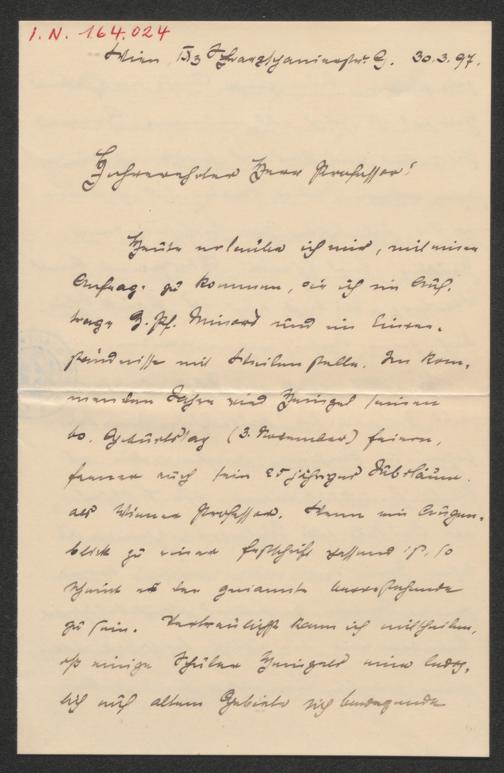 I. N. 164.024
Wien, IX/3 Schwarzspanierstr. 9. 30.3.97.
Hochverehrter Herr Professor!
Heute erlaube ich mir, mit einer
Anfrage zu kommen, die ich im Auf-
trage H. Pf. Minors und im Einver-
ständnisse mit Weilen stelle. Im kom-
menden Jahre wird Heinzel seinen
60. Geburtstag (3. November) feiern,
ferner auch sein 25 jähriges Jubiläum
als Wiener Professor. Wenn ein Augen-
blick zu einer Festschrift passend ist, so
scheint es der genannte bevorstehende
zu sein. Vertraulichst kann ich mittheilen,
daß einige Schüler Heinzels eine ledig-
lich auf altem Gebiete sich bewegende